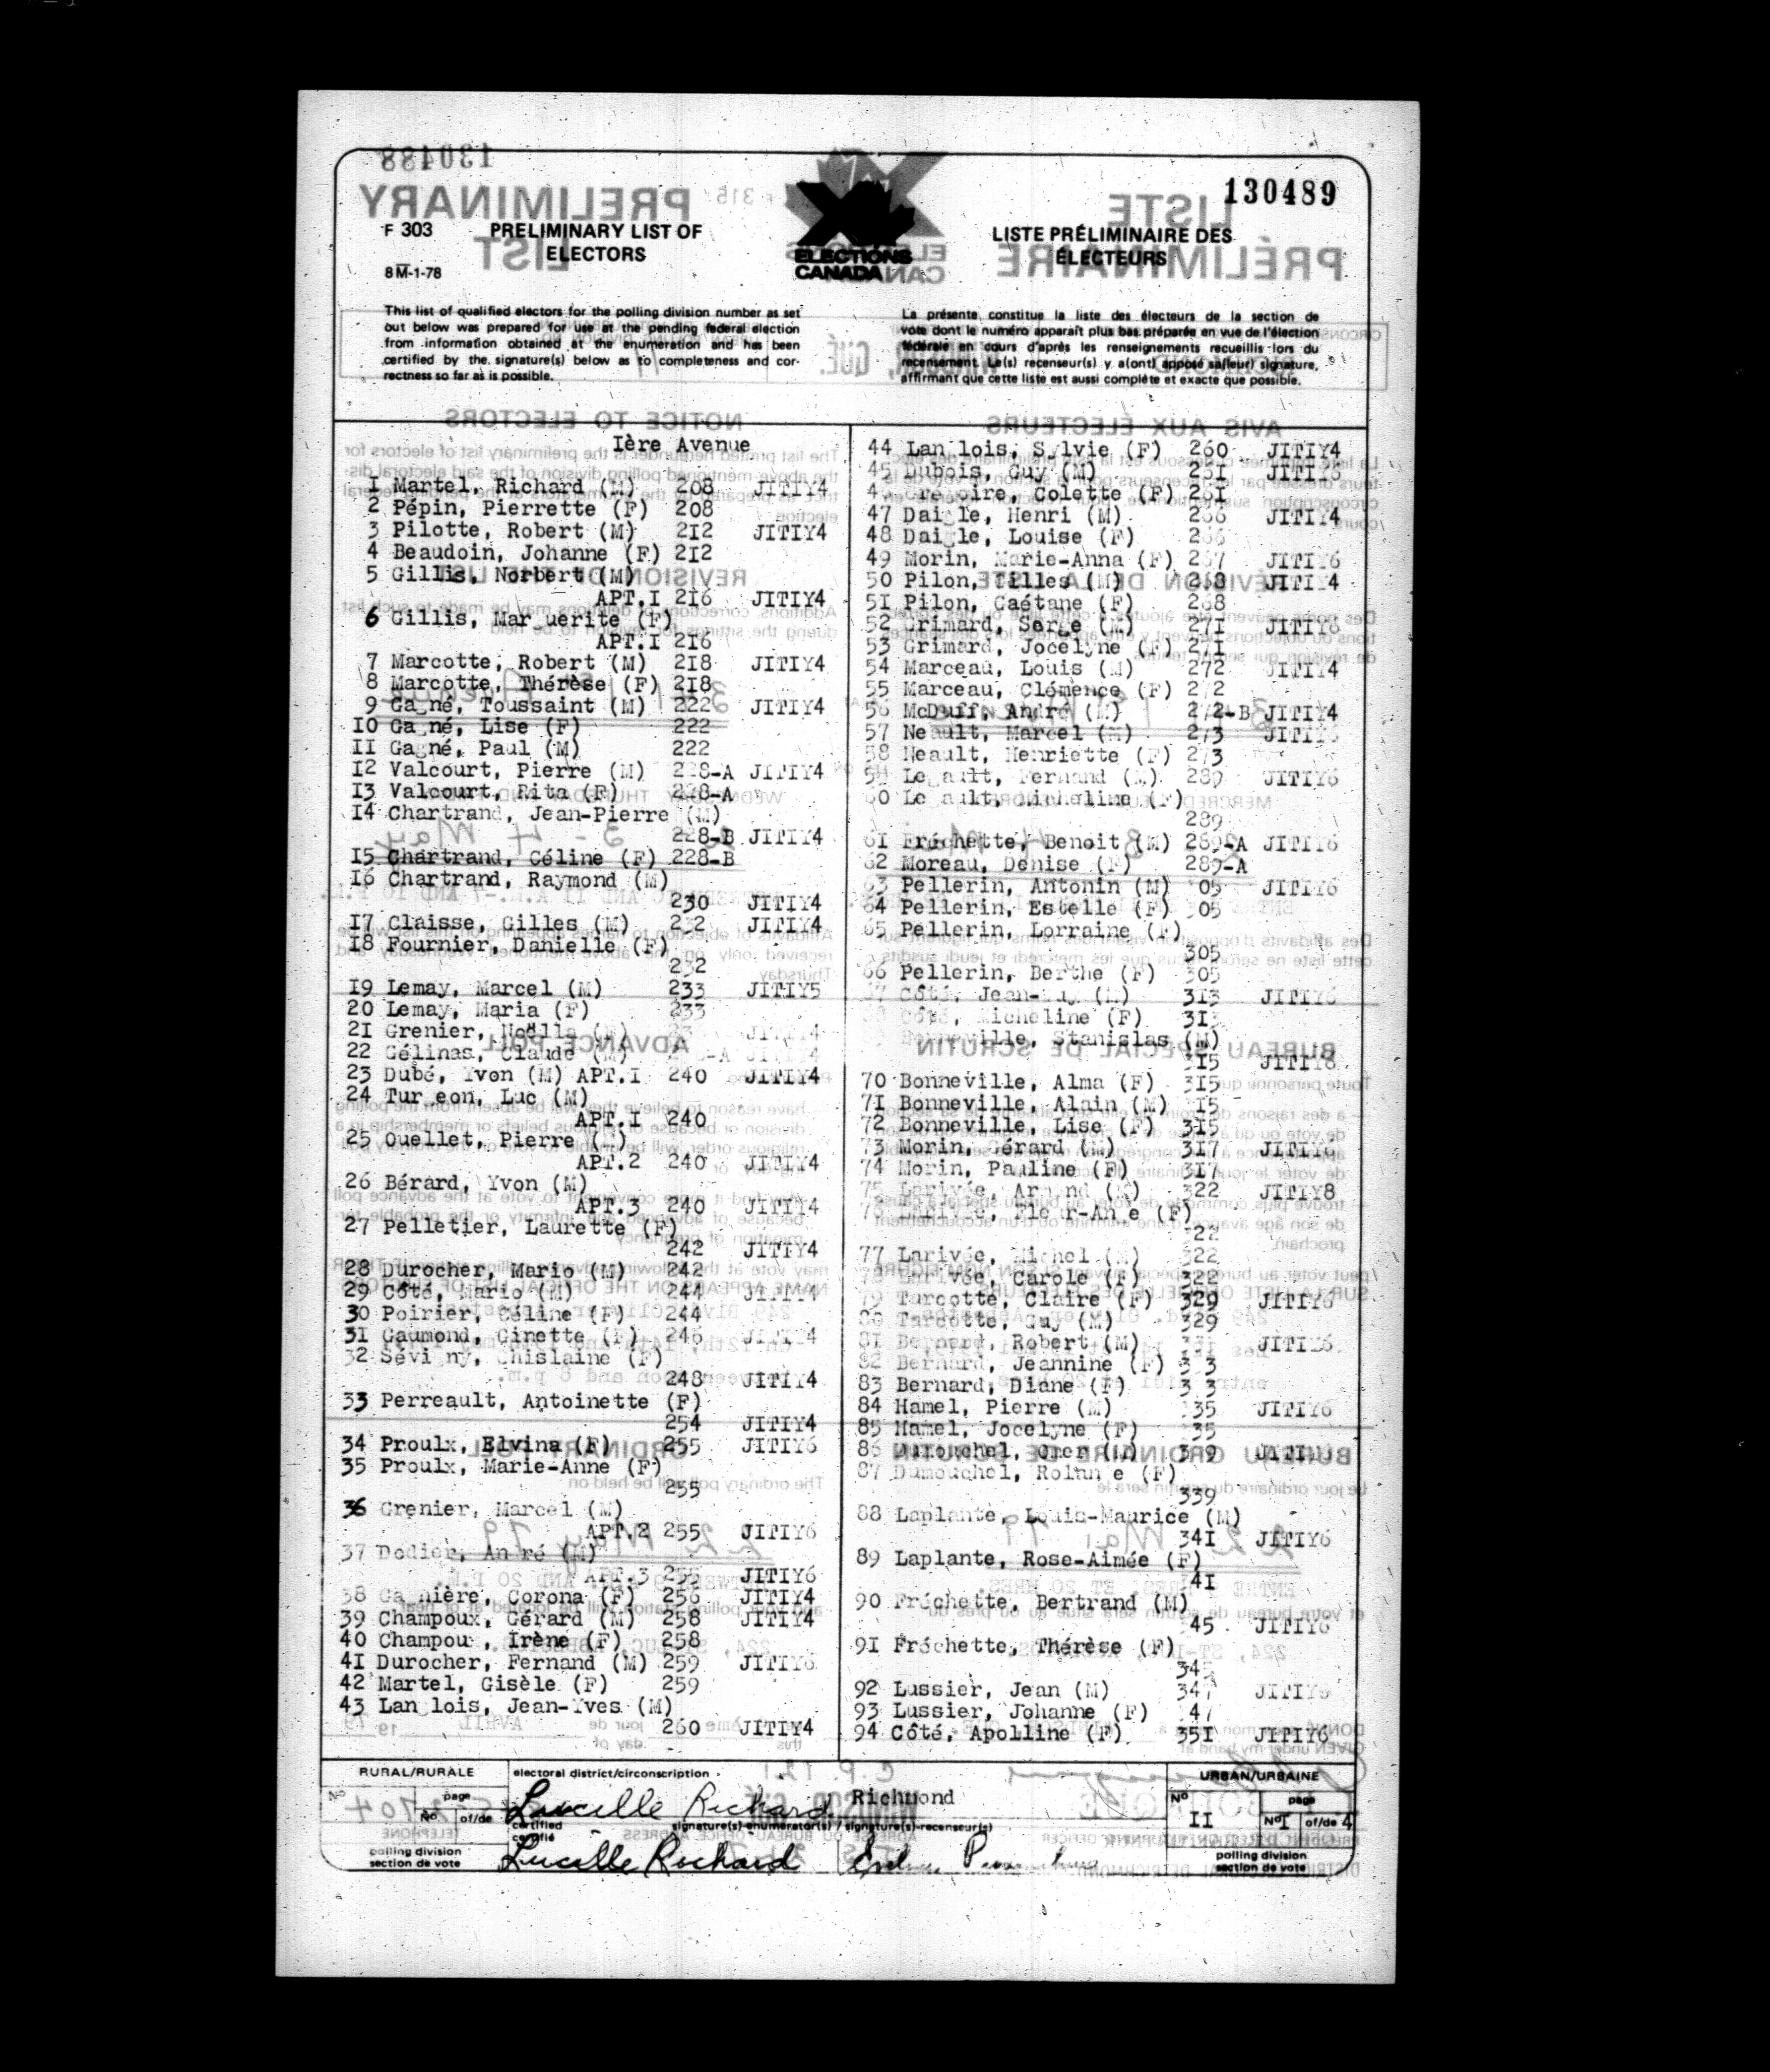 130489
F 303
PRELIMINARY LIST OF
ELECTORS
8M-1-78
ELECTIONS
CANADA
LISTE PRÉLIMINAIRE DES
ÉLECTEURS
This list of qualified electors for the polling division number as set
out below was prepared for use at the pending federal election
from information obtained at the enumeration and has been
certified by the signature(s) below as to completeness and cor-
rectness so far as is possible.
La présente constitue la liste des électeurs de la section de
vote dont le numéro apparaît plus bas préparée en vue de l'élection
fédérale en cours d'après les renseignements recueillis lors du
recensement. Le(s) recenseur(s) y a(ont) apposé sa(leur) signature,
affirmant que cette liste est aussi complète et exacte que possible.
Ière Avenue
I Martel, Richard (M) 208 JITIY4
2 Pépin, Pierrette (F) 208
3 Pilotte, Robert (M) 2I2 JITIY4
4 Beaudoin, Johanne (F) 2I2
5 Gillis, Norbert (M)
APT.I 2I6 JITIY4
6 Gillis, Marguerite (F)
APT.I 2I6
7 Marcotte, Robert (M) 2I8 JITIY4
8 Marcotte, Thérèse (F) 2I8
9 Gagné, Toussaint (M) 222 JITIY4
I0 Gagné, Lise (F) 222
II Gagné, Paul (M) 222
I2 Valcourt, Pierre (M) 228-A JITIY4
I3 Valcourt, Rita (F) 228-A
I4 Chartrand, Jean-Pierre (M)
228-B JITIY4
I5 Chartrand, Céline (F) 228-B
I6 Chartrand, Raymond (M)
230 JITIY4
I7 Claisse, Gilles (M) 232 JITIY4
I8 Fournier, Danielle (F)
232
I9 Lemay, Marcel (M) 233 JITIY5
20 Lemay, Maria (F) 233
2I Grenier, Noëlla
22 Gélinas, Claude (M)
23 Dubé, Yvon (M) APT.I 240 JITIY4
24 Turgeon, Luc (M)
APT.I 240
25 Ouellet, Pierre (M)
APT.2 240 JITIY4
26 Bérard, Yvon (M)
APT.3 240 JITIY4
27 Pelletier, Laurette (F)
242 JITIY4
28 Durocher, Mario (M) 242
29 Côté, Mario (M) 244 JITIY4
30 Poirier, Céline (F) 244
3I Gaumond, Ginette (F) 246 JITIY4
32 Sévigny, Ghislaine (F)
248 JITIY4
33 Perreault, Antoinette (F)
254 JITIY4
34 Proulx, Elvina (F) 255 JITIY6
35 Proulx, Marie-Anne (F)
255
36 Grenier, Marcel (M)
APT.2 255 JITIY6
37 Dodier, André (M)
APT.3 255 JITIY6
38 Corona (F) 256 JITIY4
39 Champoux, Gérard (M) 258 JITIY4
40 Champoux, Irène (F) 258
4I Durocher, Fernand (M) 259 JITIY6
42 Martel, Gisèle (F) 259
43 Langlois, Jean-Yves (M)
260 JITIY4
44 Langlois, Sylvie (F) 260 JITIY4
45 Dubois, Guy (M) 26I JITIY6
46 Grégoire, Colette (F) 26I
47 Daigle, Henri (M) 266 JITIY4
48 Daigle, Louise (F) 266
49 Morin, Marie-Anna (F) 267 JITIY6
50 Pilon, Gilles (M) 268 JITIY4
5I Pilon, Gaétane (F) 268
52 Grimard, Serge (M) 27I JITIY6
53 Grimard, Jocelyne (F) 27I
54 Marceau, Louis (M) 272 JITIY4
55 Marceau, Clémence (F) 272
56 McDuff, André (M) 272-B JITIY4
57 Neault, Marcel (M) 273 JITIY6
58 Neault, Henriette (F) 273
59 Legault, Fernand (M) 289 JITIY6
60 Legault, Micheline (F)
289
6I Fréchette, Benoit (M) 289-A JITIY6
62 Moreau, Denise (F) 289-A
63 Pellerin, Antonin (M) 305 JITIY6
64 Pellerin, Estelle (F) 305
65 Pellerin, Lorraine (F)
305
66 Pellerin, Berthe (F) 305
67 Côté, Jean-Guy (M) 3I3 JITIY6
68 Côté, Micheline (F) 3I3
69 Bonneville, Stanislas (M)
3I5 JITIY8
70 Bonneville, Alma (F) 3I5
7I Bonneville, Alain (M) 3I5
72 Bonneville, Lise (F) 3I5
73 Morin, Gérard (M) 3I7 JITIY6
74 Morin, Pauline (F) 3I7
75 Larivée, Armand (M) 322 JITIY8
76 Larivée, Fleur-Ange (F)
322
77 Larivée, Michel (M) 322
78 Larivée, Carole (F) 322
79 Turcotte, Claire (F) 329 JITIY6
80 Turcotte, Guy (M) 329
8I Bernard, Robert (M) JITIY6
82 Bernard, Jeannine (F) 333
83 Bernard, Diane (F) 333
84 Hamel, Pierre (M) 335 JITIY6
85 Hamel, Jocelyne (F) 335
86 Dumouchel, Omer (M) 339 JITIY6
87 Dumouchel, Rolande (F)
339
88 Laplante, Louis-Maurice (M)
34I JITIY6
89 Laplante, Rose-Aimée (F)
34I
90 Fréchette, Bertrand (M)
345 JITIY6
9I Fréchette, Thérèse (F)
345
92 Lussier, Jean (M) 347 JITIY6
93 Lussier, Johanne (F) 347
94 Côté, Apolline (F) 35I JITIY6
RURAL/RURALE
No
page
No of/de
polling division
section de vote
electoral district/circonscription
Richmond
Lucille Richard
certified
certifié
signature(s)-enumerator(s) / signature(s)-recenseur(s)
Lucille Richard
URBAN/URBAINE
No
II
page
No I of/de 4
polling division
section de vote